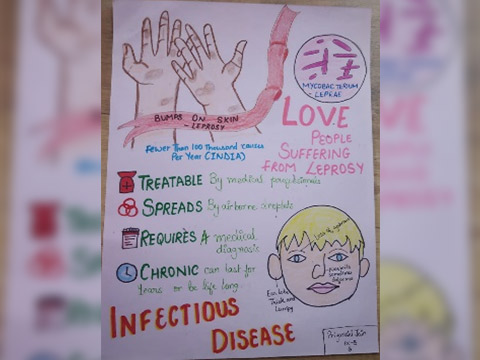 BUMPS ON SKIN
- LEPROSY
MYCOBACTERIUM
- LEPRAE
LOVE
PEOPLE
SUFFERING
FROM LEPROSY
Fewer Than 100 Thousand cases
Per Year (INDIA)
TREATABLE By medical
SPREADS By airborne
REQUIRES A medical
diagnosis
CHRONIC can last for
years or be life long
loss of eyebrows
Ear lobe
Thick and
Lumpy
INFECTIOUS
DISEASE
Jain